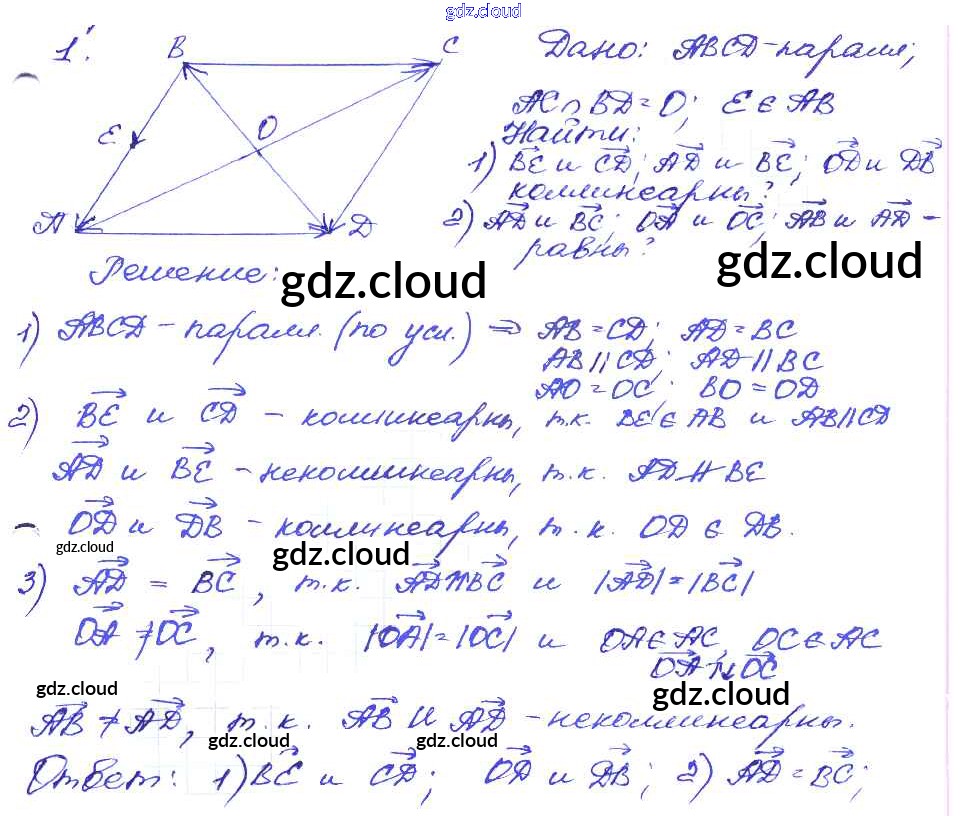 gdz.cloud
1'. B C Дано: ABCD - паралл;
E O AC ∩ BD = O; E ∈ AB
Найти:
1) BE и CD; AD и BE; OD и DB
коллинеарны?
A D 2) AD и BC; OA и OC; AB и AD -
равны?
Решение:
gdz.cloud
gdz.cloud
1) ABCD - паралл. (по усл.) ⇒ AB = CD; AD = BC
AB || CD; AD || BC
AO = OC; BO = OD
2) BE и CD - коллинеарны, т.к. BE ∈ AB и AB || CD
AD и BE - неколлинеарны, т.к. AD ∦ BE
OD и DB - коллинеарны, т.к. OD ∈ DB.
gdz.cloud
gdz.cloud
3) AD = BC, т.к. AD ↑↑ BC и |AD| = |BC|
OA ≠ OC, т.к. |OA| = |OC| и OA ∈ AC, OC ∈ AC
OA ↑↓ OC
gdz.cloud
gdz.cloud
AB ≠ AD, т.к. AB и AD - неколлинеарны.
gdz.cloud
gdz.cloud
Ответ: 1) BE и CD; OD и DB; 2) AD = BC;